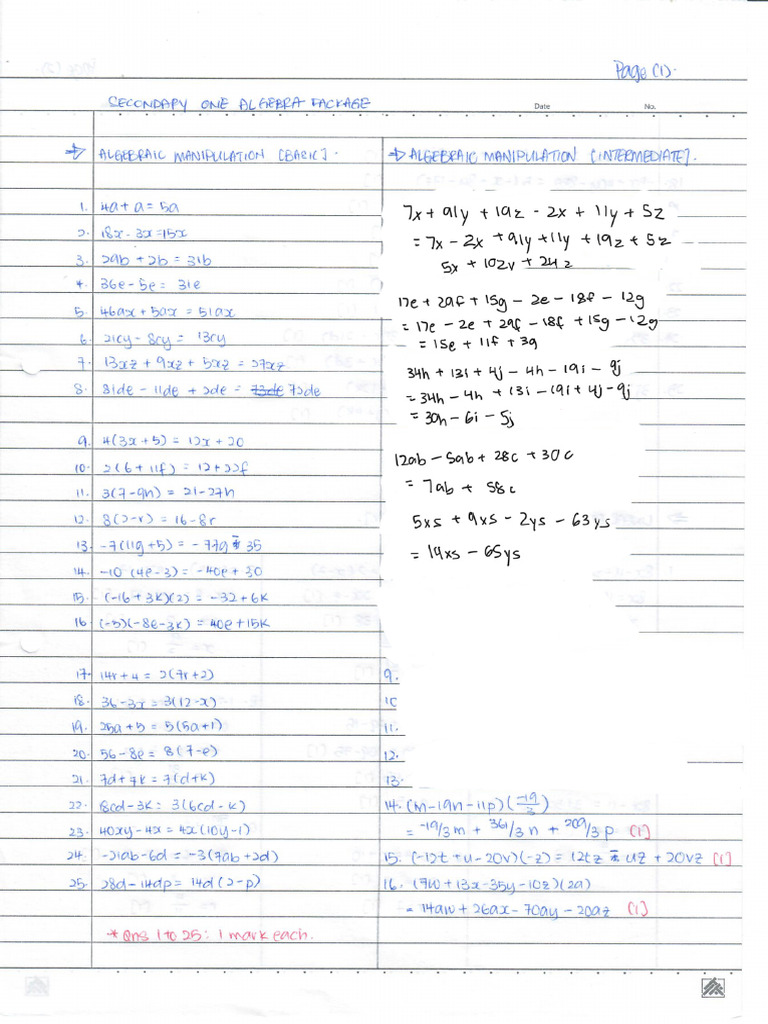 Page (1).
SECONDARY ONE ALGEBRA PACKAGE
Date
No.
⇒ ALGEBRAIC MANIPULATION [BASIC].
1. 4a + a = 5a
2. 18x - 3x = 15x
3. 29b + 2b = 31b
4. 36e - 5e = 31e
5. 46ax + 5ax = 51ax
6. 21cy - 8cy = 13cy
7. 13xz + 9xz + 5xz = 27xz
8. 81de - 11de + 2de = 73de 72de
9. 4(3x + 5) = 12x + 20
10. 2(6 + 11f) = 12 + 22f
11. 3(7 - 9h) = 21 - 27h
12. 8(2 - r) = 16 - 8r
13. -7(11g + 5) = -77g - 35
14. -10(4e - 3) = -40e + 30
15. (-16 + 3k)(2) = -32 + 6k
16. (-5)(-8e - 3k) = 40e + 15k
17. 14r + 4 = 2(7r + 2)
18. 36 - 3x = 3(12 - x)
19. 25a + 5 = 5(5a + 1)
20. 56 - 8e = 8(7 - e)
21. 7d + 7k = 7(d + k)
22. 18cd - 3k = 3(6cd - k)
23. 40xy - 4x = 4x(10y - 1)
24. -21ab - 6d = -3(7ab + 2d)
25. 28d - 14dp = 14d(2 - p)
* Qns 1 to 25 : 1 mark each.
⇒ ALGEBRAIC MANIPULATION [INTERMEDIATE].
7x + 91y + 19z - 2x + 11y + 5z
= 7x - 2x + 91y + 11y + 19z + 5z
5x + 102y + 24z
17e + 29f + 15g - 2e - 18f - 12g
= 17e - 2e + 29f - 18f + 15g - 12g
= 15e + 11f + 3g
34h + 13i + 4j - 4h - 19i - 9j
= 34h - 4h + 13i - 19i + 4j - 9j
= 30h - 6i - 5j
12ab - 5ab + 28c + 30c
= 7ab + 58c
5xs + 9xs - 2ys - 63ys
= 14xs - 65ys
9.
10
11.
12.
13.
14. (m - 19n - 11p)(-19/3)
= -19/3 m + 361/3 n + 209/3 p [1]
15. (-12t + u - 20v)(-z) = 12tz - uz + 20vz [1]
16. (7w + 13x - 35y - 10z)(2a)
= 14aw + 26ax - 70ay - 20az [1]